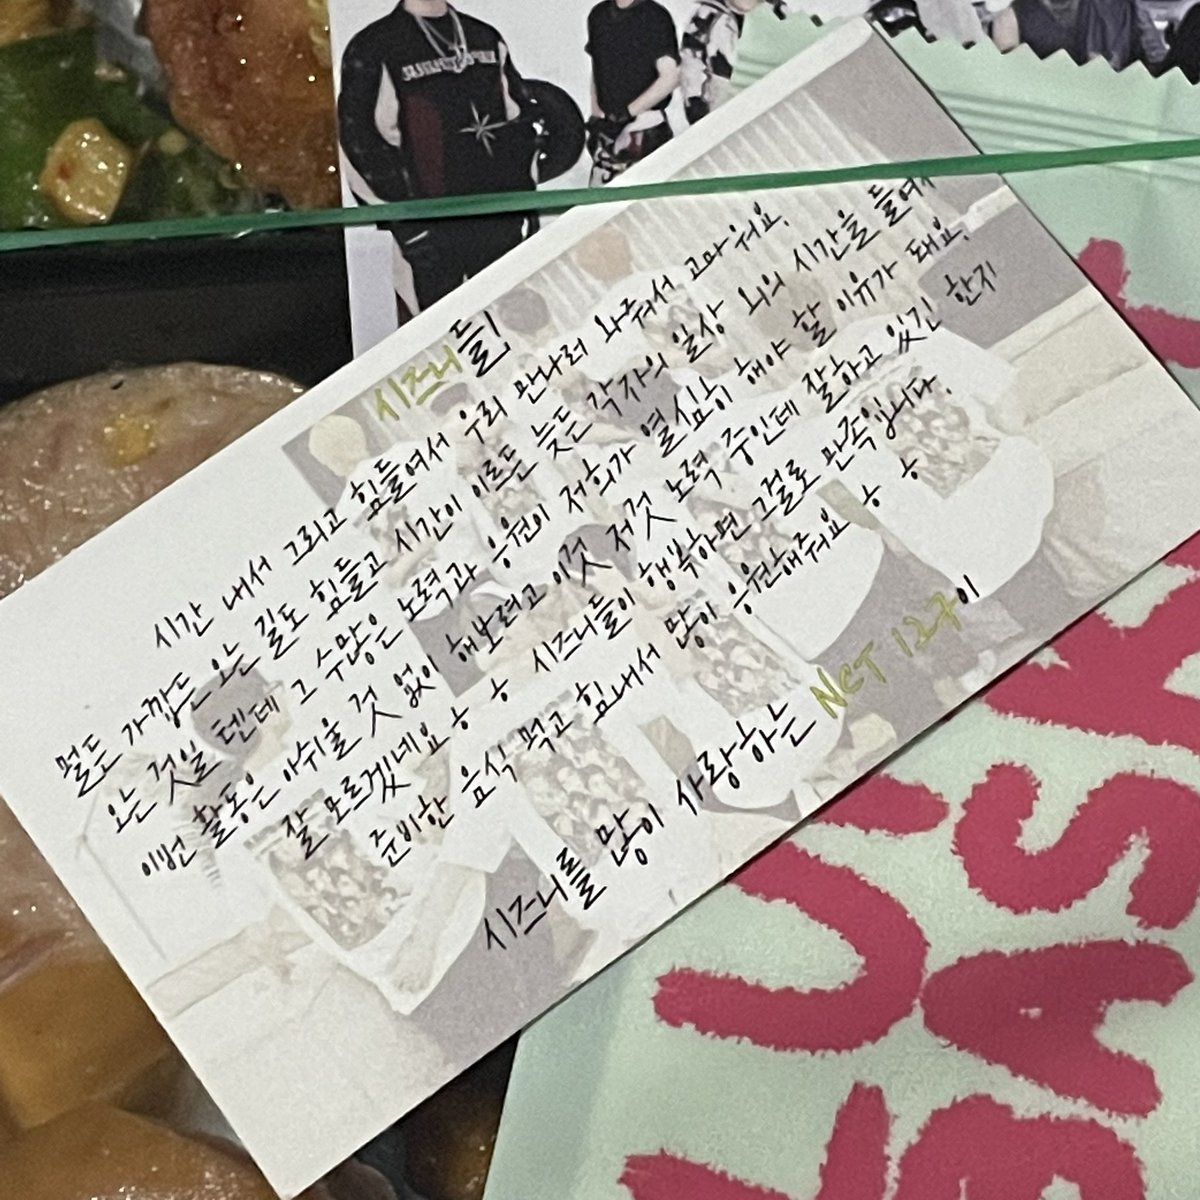 시즈니들!
시간 내서 그리고 힘들여서 우리 만나러 와줘서 고마워요.
멀든 가깝든 오는 길도 힘들고 시간이 이르든 늦든 각자의 일상 외의 시간을 들여서
오는 것일 텐데 그 수많은 노력과 응원이 저희가 열심히 해야 할 이유가 돼요.
이번 활동은 아쉬울 것 없이 해보려고 이것 저것 노력 중인데 잘하고 있긴 한지
잘 모르겠네요 ㅎㅎ 시즈니들이 행복하면 그걸로 만족입니다.
준비한 음식 먹고 힘내서 많이 응원해줘요 ㅎㅎ
시즈니를 많이 사랑하는 NCT 127이